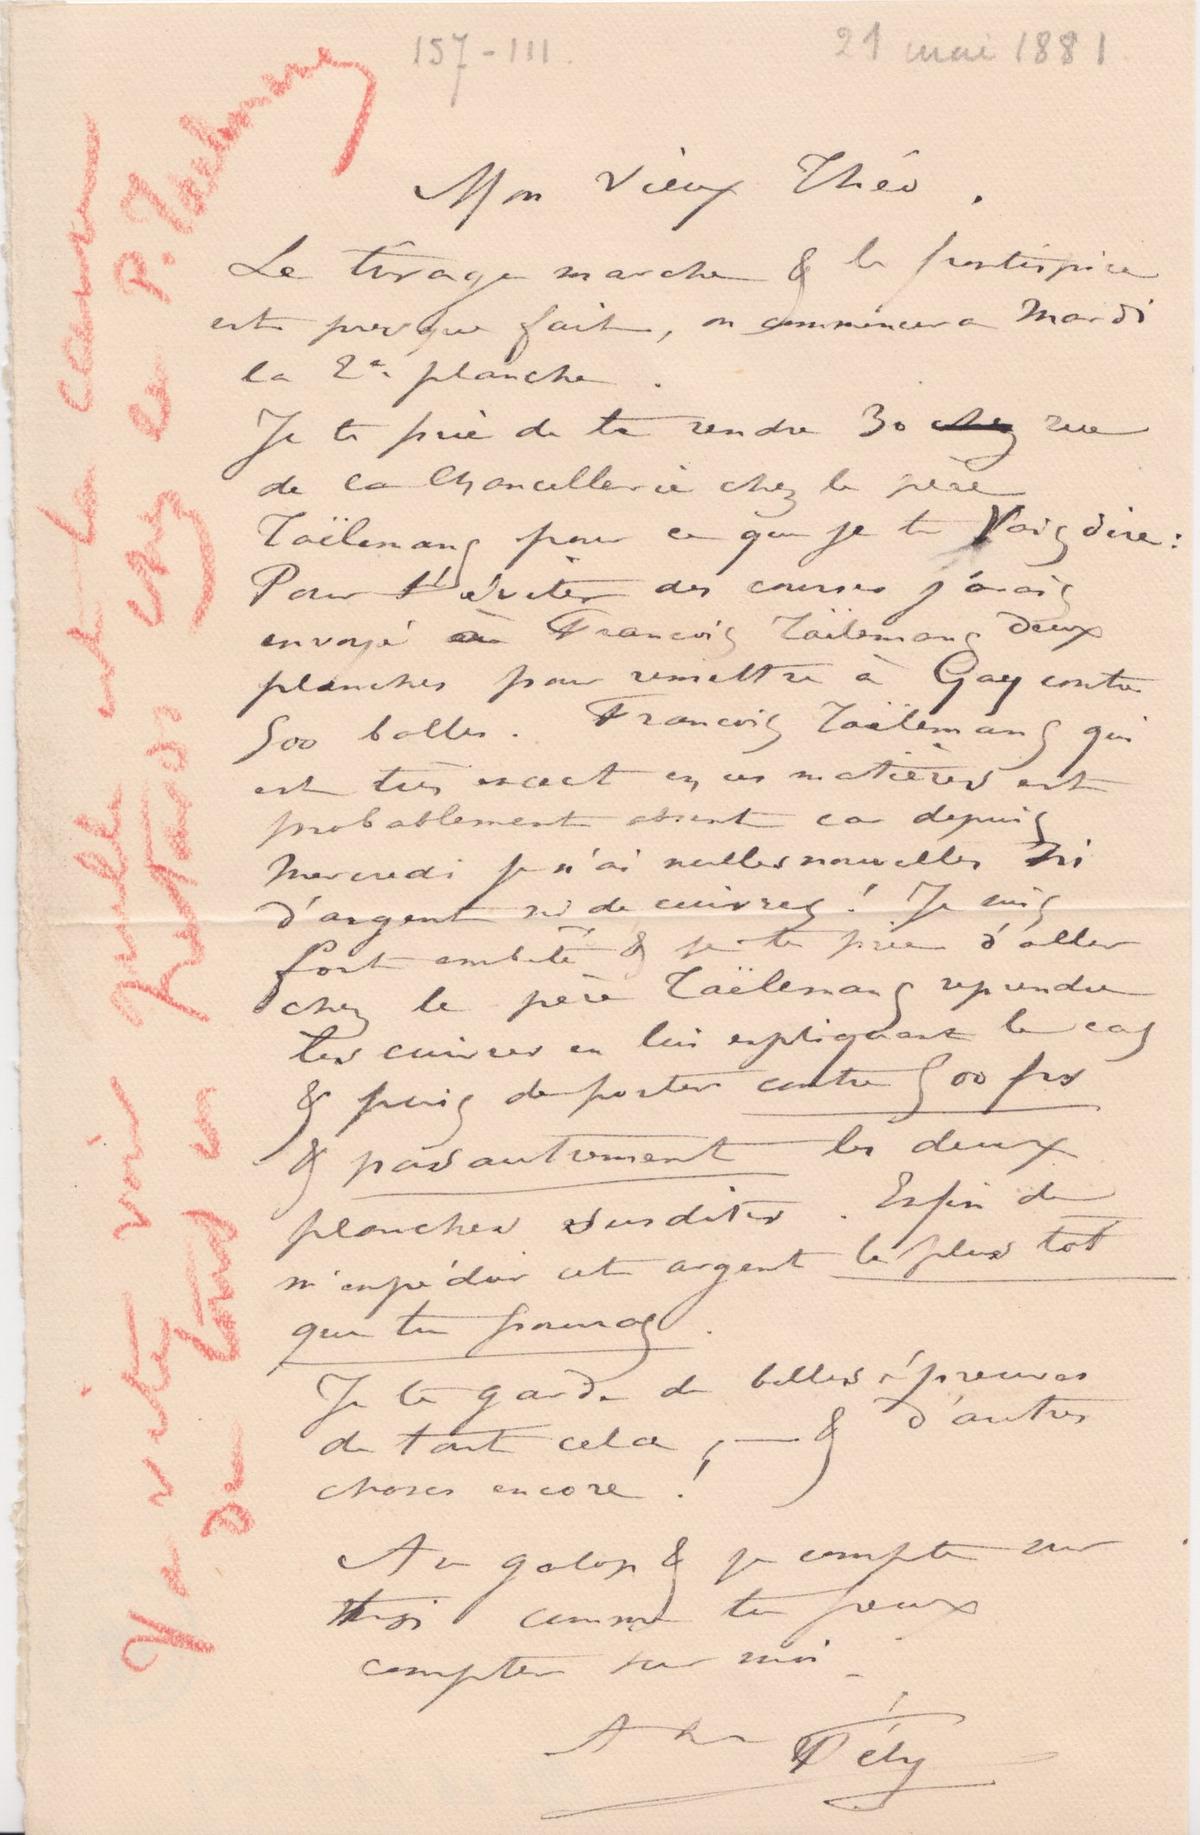 157-III.
21 mai 1881
Mon vieux Théo.
Le tirage marche & le frontispice
est presque fait, on commencera Mardi
la 2e planche.
Je te prie de te rendre 30 chez rue
de la Chancellerie chez le père
Taëlemans pour ce que je te Vais dire:
Pour t'éviter des courses j'avais
envoyé à François Taëlemans deux
planches pour remettre à Gay contre
500 balles. François Taëlemans qui
est très exact en ces matières est
probablement absent car depuis
Mercredi je n'ai nulles nouvelles Ni
d'argent ni de cuivres! Je suis
fort embêté & je te prie d'aller
chez le père Taëlemans reprendre
les cuivres en lui expliquant le cas
& puis de porter contre 500 frs
& pas autrement les deux
planches susdites. Enfin de
m'expédier cet argent le plus tôt
que tu pourras.
Je te garde de belles épreuves
de tout cela, — & d'autres
choses encore!
Au galop & je compte sur
toi comme tu peux
compter sur moi.
A toi
Fély
Va vite voir quelle est la cause
de tout ce retard chez le P. Taelemans